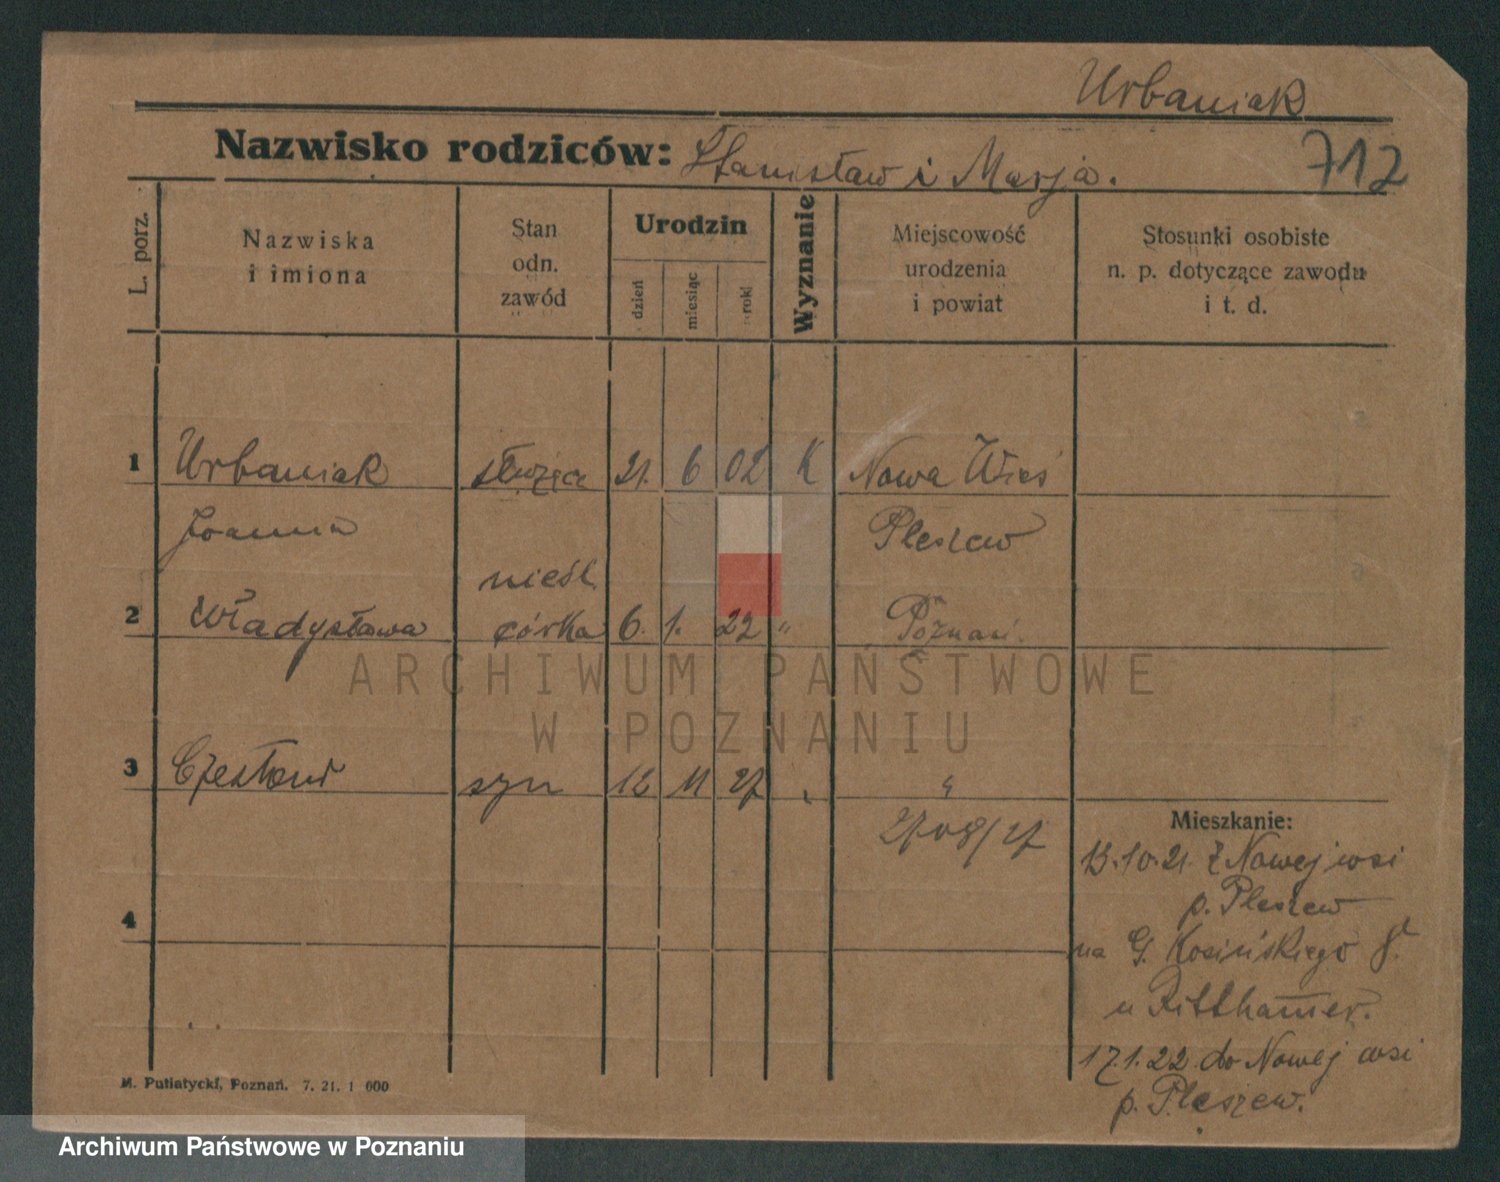 Urbaniak
Nazwisko rodziców: Stanisław i Marja.
712
L. porz.
Nazwiska
i imiona
Stan
odn.
zawód
Urodzin
dzień
miesiąc
rok
Wyznanie
Miejscowość
urodzenia
i powiat
Stosunki osobiste
n. p. dotyczące zawodu
i t. d.
1 Urbaniak służąca 21. 6 02 K Nowa Wieś
Joanna Pleszew
nieśl.
2 Władysława córka 6. 1. 22 " Poznań.
3 Czesław syn 12 11 27 " "
2708/27
4
Mieszkanie:
13.10.21. z Nowej wsi
p. Pleszew
na G. Kosińskiego 8
u Ritthamer.
17.1.22 do Nowej wsi
p. Pleszew.
M. Putiatycki, Poznań. 7. 21. 1 000
ARCHIWUM PAŃSTWOWE
W POZNANIU
Archiwum Państwowe w Poznaniu